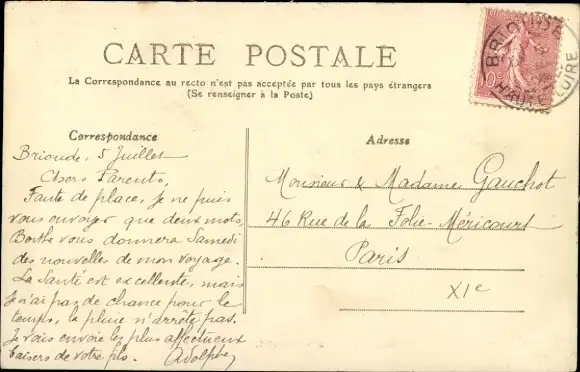 CARTE POSTALE
La Correspondance au recto n'est pas acceptée par tous les pays étrangers
(Se renseigner à la Poste)
BRIOUDE
HAUTE LOIRE
Correspondance
Brioude, 5 Juillet
Chers Parents,
Faute de place, je ne puis
vous envoyer que deux mots,
Berthe vous donnera Samedi
des nouvelles de mon voyage.
La Santé est excellente, mais
je n'ai pas de chance pour le
temps, la pluie n'arrête pas.
Je vous envoie les plus affectueux
baisers de votre fils. Adolphe
Adresse
Monsieur & Madame Gauchot
46 Rue de la Folie-Méricourt
Paris
XIe